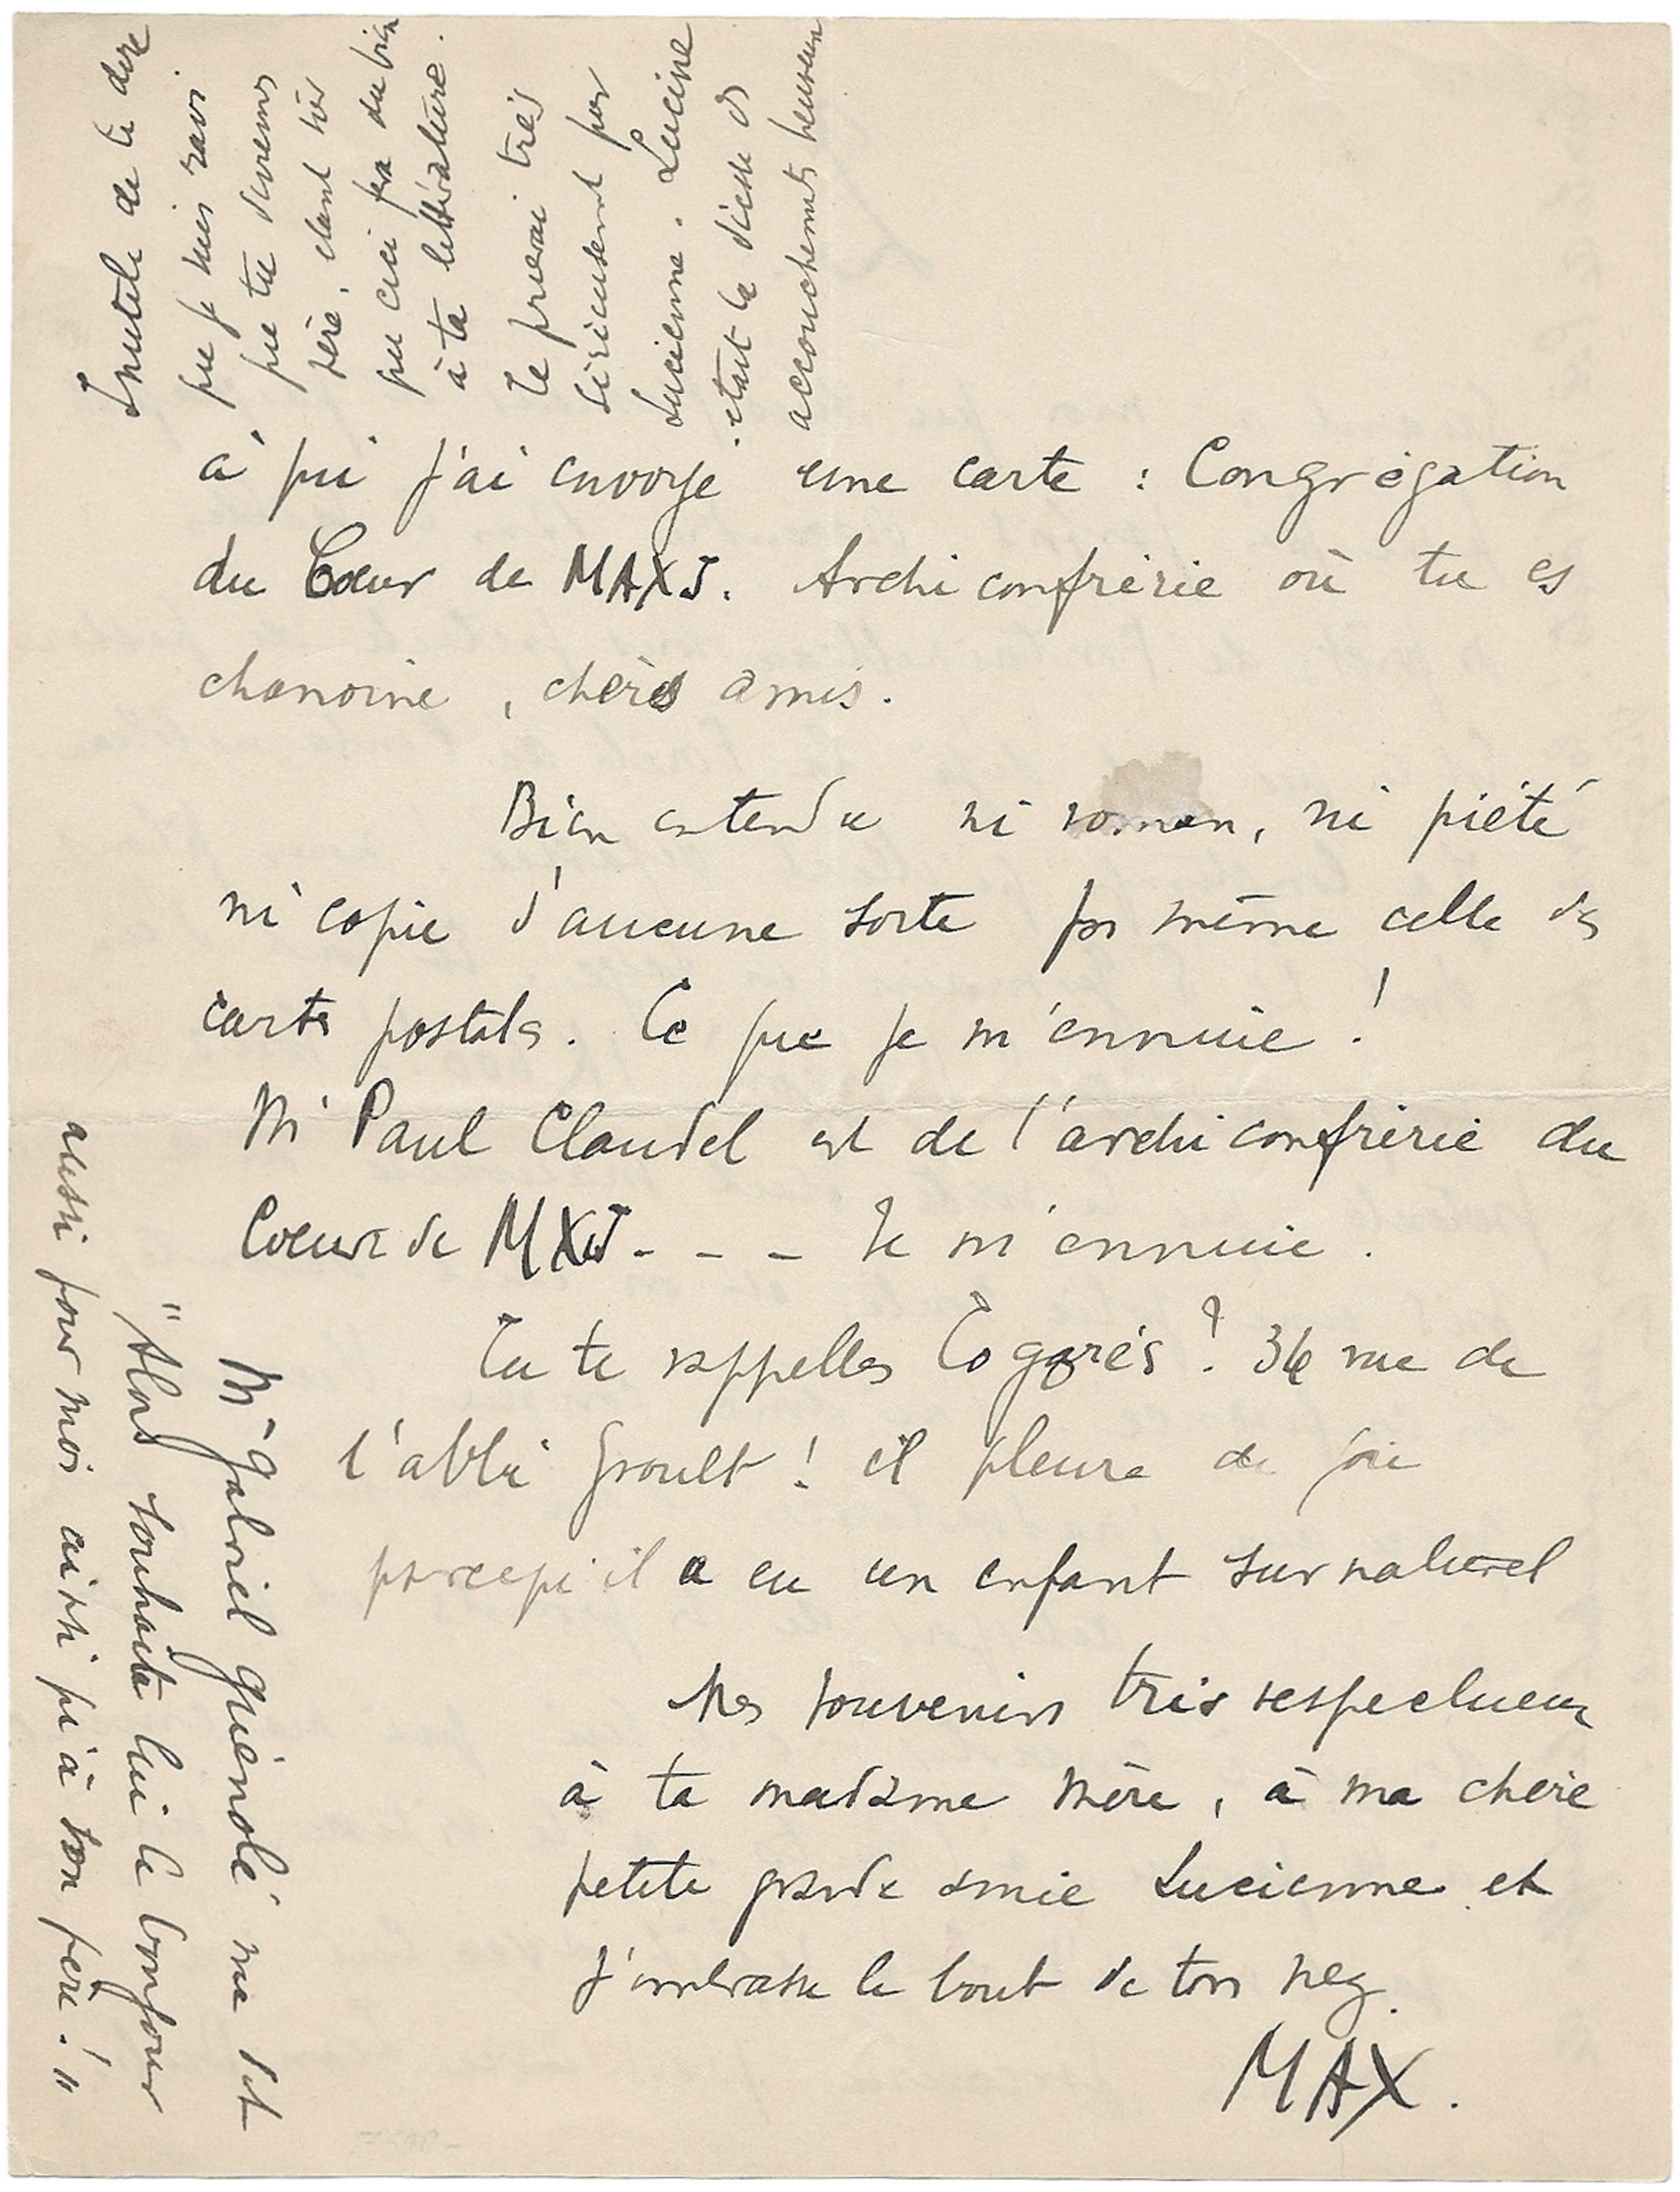 Inutile de te dire
que je suis ravi
que tu deviennes
père, étant très
que ceci fera du bien
à ta littérature.
Te prierai très
sérieusement pour
Lucienne. Lucine
était la déesse des
accouchements heureux
à qui j'ai envoyé une carte : Congrégation
du Cœur de MAXJ. Archiconfrérie où tu es
chanoine, chers amis.
Bien entendu ni roman, ni piété
ni copie d'aucune sorte pas même celle des
cartes postales. Ce que je m'ennuie !
Mr Paul Claudel est de l'archiconfrérie du
Coeur de MXJ - - - Je m'ennuie.
Tu te rappelles Cogarés ? 34 rue de
l'abbé Groult ! il pleure de joie
parcequ'il a eu un enfant surnaturel
Mes souvenirs très respectueux
à ta madame mère, à ma chère
petite grande amie Lucienne et
j'embrasse le bout de ton nez.
MAX.
Mr Gabriel Guénolé me dit
"Alors souhaite lui le bonjour
aussi pour moi ainsi qu'à son père !"